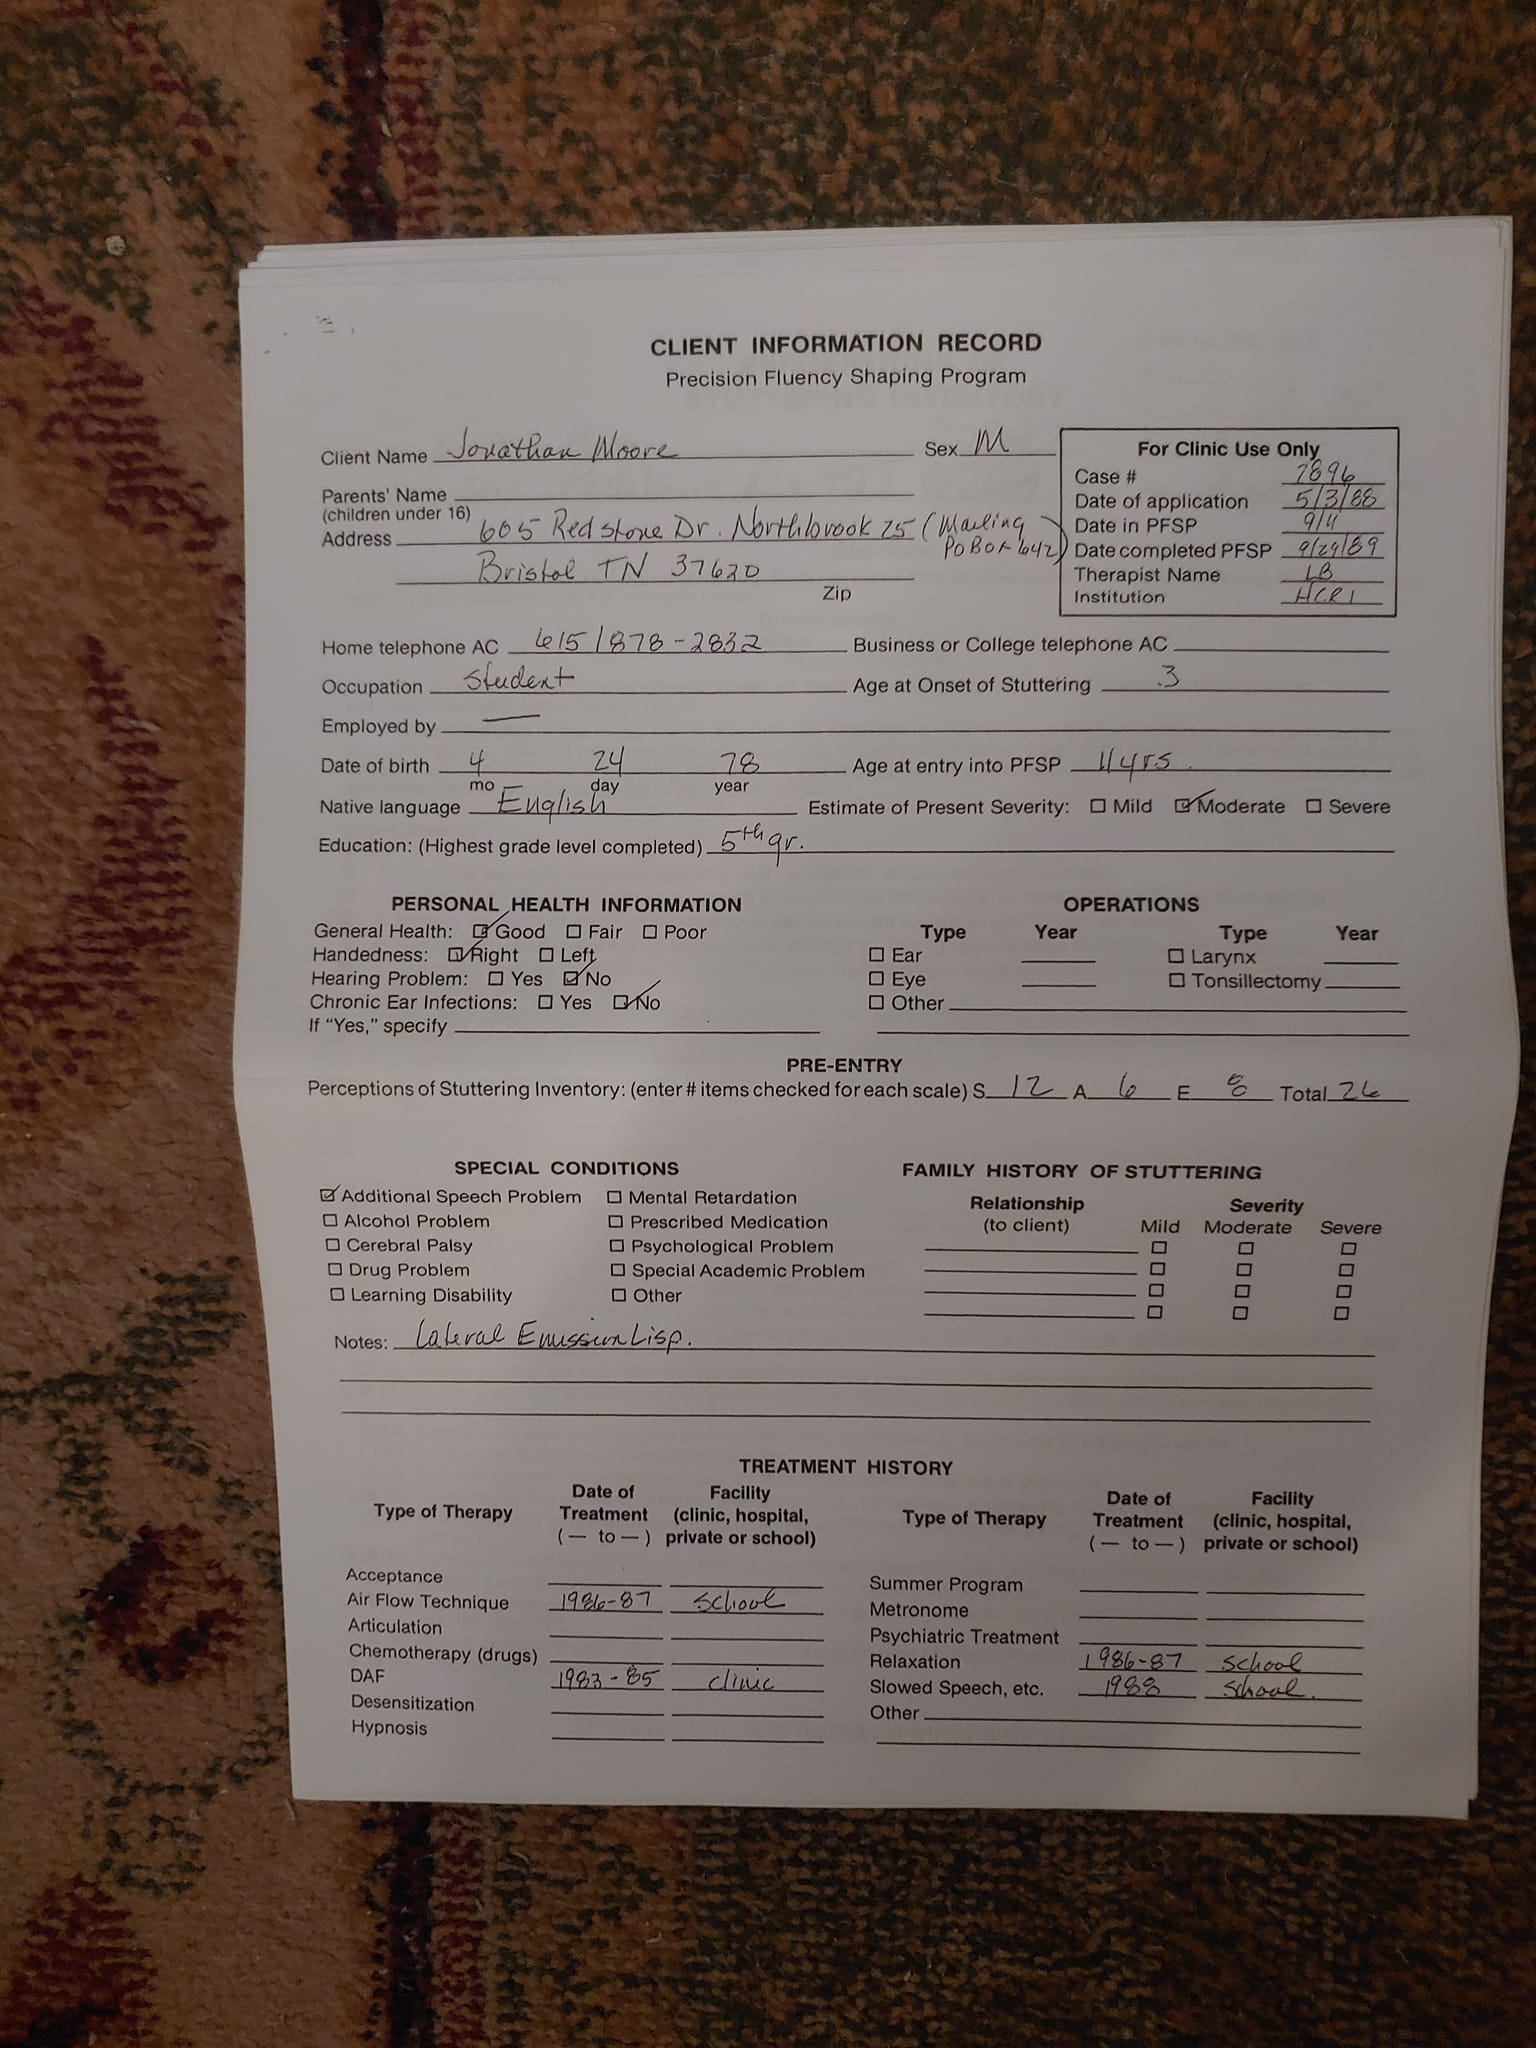 CLIENT INFORMATION RECORD
Precision Fluency Shaping Program
Client Name Jonathan Moore Sex M
Parents' Name
(children under 16)
Address 605 Redstone Dr. Northbrook 25 (Mailing
PO Box 642)
Bristol TN 37620
Zip
For Clinic Use Only
Case # 7896
Date of application 5/3/88
Date in PFSP 9/11
Date completed PFSP 9/29/89
Therapist Name LB
Institution HCRI
Home telephone AC 615/878-2832 Business or College telephone AC
Occupation Student Age at Onset of Stuttering 3
Employed by —
Date of birth 4 24 78 Age at entry into PFSP 11 yrs.
mo day year
Native language English Estimate of Present Severity: ☐ Mild ☑ Moderate ☐ Severe
Education: (Highest grade level completed) 5th gr.
PERSONAL HEALTH INFORMATION
General Health: ☑ Good ☐ Fair ☐ Poor
Handedness: ☑ Right ☐ Left
Hearing Problem: ☐ Yes ☑ No
Chronic Ear Infections: ☐ Yes ☑ No
If "Yes," specify
OPERATIONS
Type Year Type Year
☐ Ear ☐ Larynx
☐ Eye ☐ Tonsillectomy
☐ Other
PRE-ENTRY
Perceptions of Stuttering Inventory: (enter # items checked for each scale) S 12 A 6 E 8 Total 26
SPECIAL CONDITIONS
☑ Additional Speech Problem ☐ Mental Retardation
☐ Alcohol Problem ☐ Prescribed Medication
☐ Cerebral Palsy ☐ Psychological Problem
☐ Drug Problem ☐ Special Academic Problem
☐ Learning Disability ☐ Other
FAMILY HISTORY OF STUTTERING
Relationship Severity
(to client) Mild Moderate Severe
☐ ☐ ☐
☐ ☐ ☐
☐ ☐ ☐
☐ ☐ ☐
Notes: Lateral Emission Lisp.
TREATMENT HISTORY
Type of Therapy Date of Treatment (— to —) Facility (clinic, hospital, private or school)
Acceptance
Air Flow Technique 1986-87 school
Articulation
Chemotherapy (drugs)
DAF 1983-85 clinic
Desensitization
Hypnosis
Type of Therapy Date of Treatment (— to —) Facility (clinic, hospital, private or school)
Summer Program
Metronome
Psychiatric Treatment
Relaxation 1986-87 school
Slowed Speech, etc. 1988 school.
Other